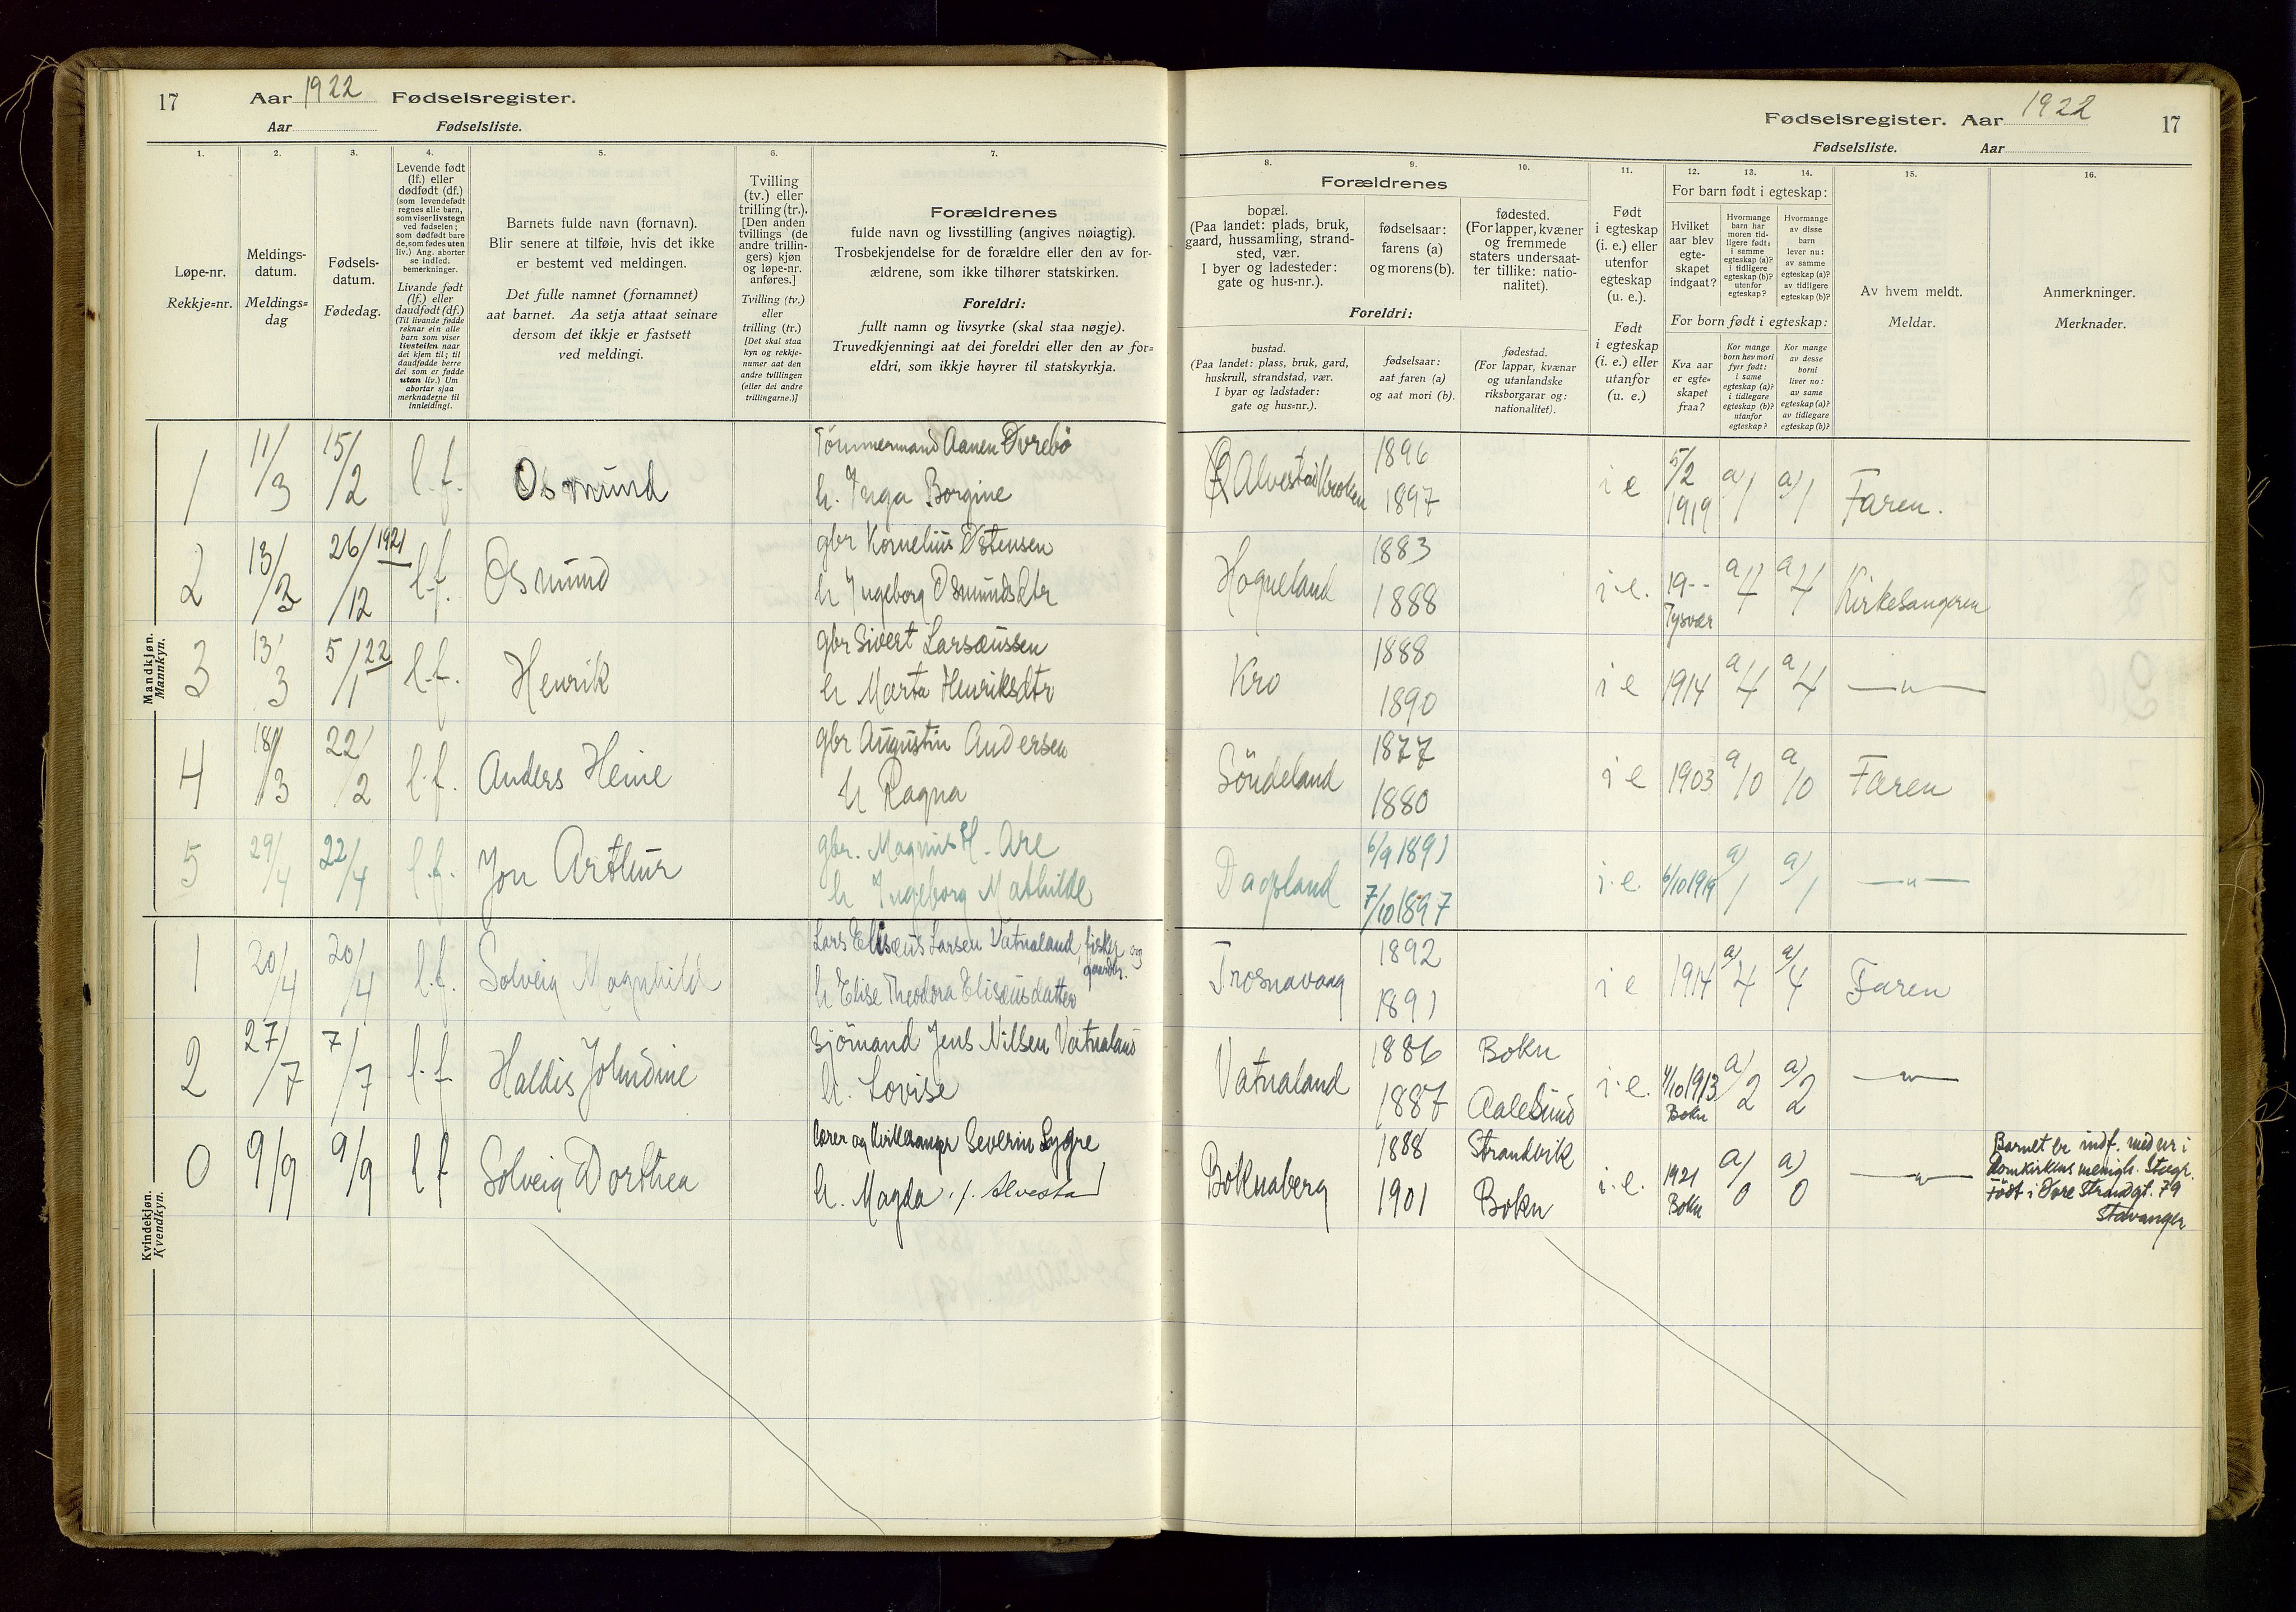 17 Aar 1922 Fødselsregister.
Aar Fødselsliste.
1. 2. 3. 4. 5. 6. 7.
Løpe-nr.
Rekkje=nr.
Meldings-
datum.
Meldings=
dag
Fødsels-
datum.
Fødedag.
Levende født
(lf.) eller
dødfødt (df.)
(som levendefødt
regnes alle barn,
som viser livstegn
ved fødselen;
som dødfødt bare
de, som fødes uten
liv.) Ang. aborter
se indled.
bemerkninger.
Livande født
(lf.) eller
daudfødt (df.)
(Til livande fødde
reknar ein alle
barn som viser
livsteikn naar
dei kjem til; til
daudfødde berre
dei som er fødde
utan liv.) Um
abortar sjaa
merknaderne til
innleidingi.
Barnets fulde navn (fornavn).
Blir senere at tilføie, hvis det ikke
er bestemt ved meldingen.
Det fulle namnet (fornamnet)
aat barnet. Aa setja attaat seinare
dersom det ikkje er fastsett
ved meldingi.
Tvilling
(tv.) eller
trilling (tr.).
[Den anden
tvillings (de
andre trillin-
gers) kjøn
og løpe-nr.
anføres.]
Tvilling (tv.)
eller
trilling (tr.)
[Det skal staa
kyn og rekkje-
numer aat den
andre tvillingen
(eller dei andre
trillingarne.)]
Forældrenes
fulde navn og livsstilling (angives nøiagtig).
Trosbekjendelse for de forældre eller den av for-
ældrene, som ikke tilhører statskirken.
Foreldri:
fullt namn og livsyrke (skal staa nøgje).
Truvedkjenningi aat dei foreldri eller den av for=
eldri, som ikkje høyrer til statskyrkja.
Mandkjøn.
Mannkyn.
1 11/3 15/2 l.f. Osmund Tömmermand Aanen Øvrebö
h. Inga Borgine
2 13/3 26/12 1921 l.f. Osmund gbr Kornelius Østensen
h Ingeborg Osmundsdtr
3 13/3 5/1 22 l.f. Henrik gbr Sivert Larsaussen
h Marta Henriksdtr
4 18/3 22/2 l.f. Anders Heine gbr Augustin Andersen
h Ragna
5 29/4 22/4 l.f. Jon Arthur gbr. Magnus H. Are
h Ingeborg Mathilde
Kvindekjøn.
Kvendkyn.
1 20/4 20/4 l.f. Solveig Magnhild Lars Elisæus Larsen Vatnaland, fisker og
gaardbr.
h Elise Theodora Elisæusdatter
2 27/7 7/7 l.f. Haldis Johndine Sjömand Jens Nilsen Vatnaland
h. Lovise
0 9/9 9/9 l f Solveig Dorthea Lærer og Kirkesanger Severin Lygre
h. Magda f. Alvestad
Fødselsregister. Aar 1922 17
Fødselsliste. Aar
8. 9. 10. 11. 12. 13. 14. 15. 16.
Forældrenes
bopæl.
(Paa landet: plads, bruk,
gaard, hussamling, strand-
sted, vær.
I byer og ladesteder:
gate og hus-nr.).
fødselsaar:
farens (a)
og morens (b).
fødested.
(For lapper, kvæner
og fremmede
staters undersaat-
ter tillike: natio-
nalitet).
Foreldri:
bustad.
(Paa landet: plass, bruk, gard,
huskrull, strandstad, vær.
I byar og ladstader:
gate og hus=nr.).
fødselsaar:
aat faren (a)
og aat mori (b).
fødestad.
(For lappar, kvænar
og utanlandske
riksborgarar og:
nationalitet).
Født
i egteskap
(i. e.) eller
utenfor
egteskap
(u. e.).
Født
i egteskap
(i. e.) eller
utanfor
(u. e.)
For barn født i egteskap:
Hvilket
aar blev
egte-
skapet
indgaat?
Hvormange
barn har
moren tid-
ligere født:
i samme
egteskap (a)?
i tidligere
egteskap (b)?
utenfor
egteskap?
Hvormange
av disse
barn
lever nu:
av samme
egteskap (a)?
av tidligere
egteskap (b)?
For born født i egteskap:
Kva aar
er egte=
skapet
fraa?
Kor mange
born hev mori
fyrr født:
i same
egteskap (a)?
i tidlegare
egteskap (b)?
utanfor
egteskap?
Kor mange
av desse
borni
liver no:
av same
egteskap (a)?
av tidlegare
egteskap (b)?
Av hvem meldt.
Meldar.
Anmerkninger.
Merknader.
Alvestad Kroken 1896 1897 i e 5/2 1919 a/1 a/1 Faren.
Hogneland 1883 1888 i e. 19-- Tysvær a 4 a 4 Kirkesangeren
Kro 1888 1890 i e 1914 a 4 a 4 —"—
Söndeland 1877 1880 i e 1903 a/10 a/10 Faren
Dagsland 6/9 1891 7/10 1897 i. e. 6/10 1919 a/1 a/1 —"—
Trosnavaag 1892 1891 i e 1914 a/4 a/4 Faren
Vatnaland 1886 Bokn 1887 Aalesund i. e. 4/10 1913 Bokn a/2 a/2 —"—
Boknaberg 1888 Strandvik 1901 Bokn i. e. 1921 Bokn a) 0 a) 0 —"—
Barnet er indf. med nr i
Domkirkens menigh. Stvgr.
Födt i Øvre Strandgt. 79
Stavanger